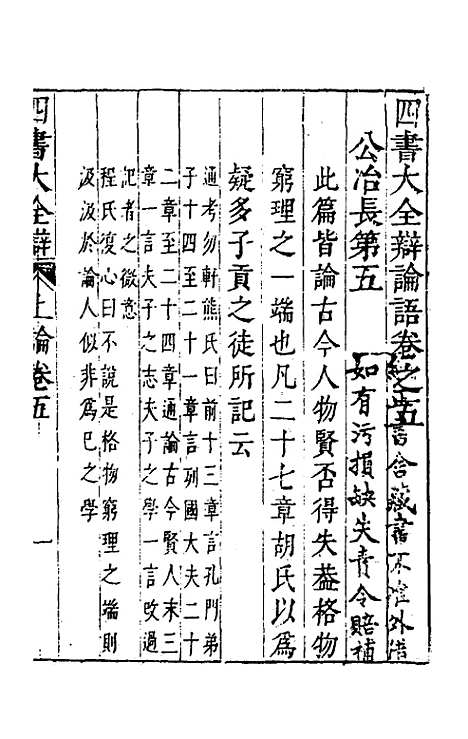 四書大全辯論語卷之五
書舍藏書不準外借
如有污損缺失責令賠補
公冶長第五
此篇皆論古今人物賢否得失葢格物
窮理之一端也凡二十七章胡氏以為
疑多子貢之徒所記云
通考勿軒熊氏曰前十三章言孔門弟
子十四至二十一章言列國大夫二十
二章至二十四章通論古今賢人末三
章一言夫子之志夫子之學一言改過
記者之微意
程氏復心曰不說是格物窮理之端則
汲汲於論人似非為已之學
四書大全辯
上論卷五
一